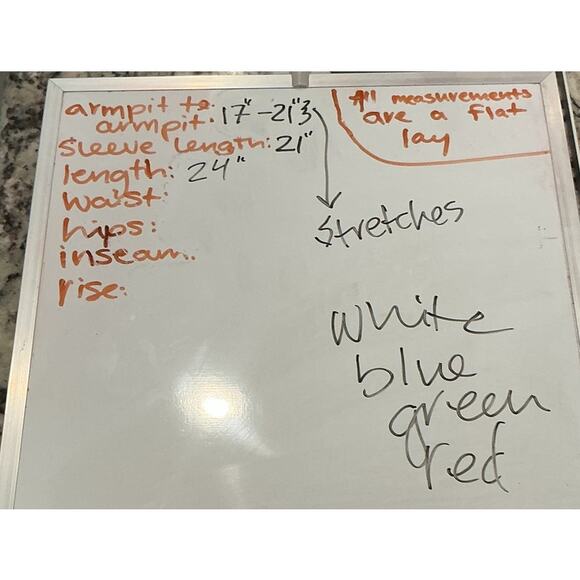 armpit to
armpit: 17" - 21"
sleeve length: 21"
length: 24"
waist:
hips:
inseam:
rise:
All measurements
are a flat
lay
stretches
white
blue
green
red